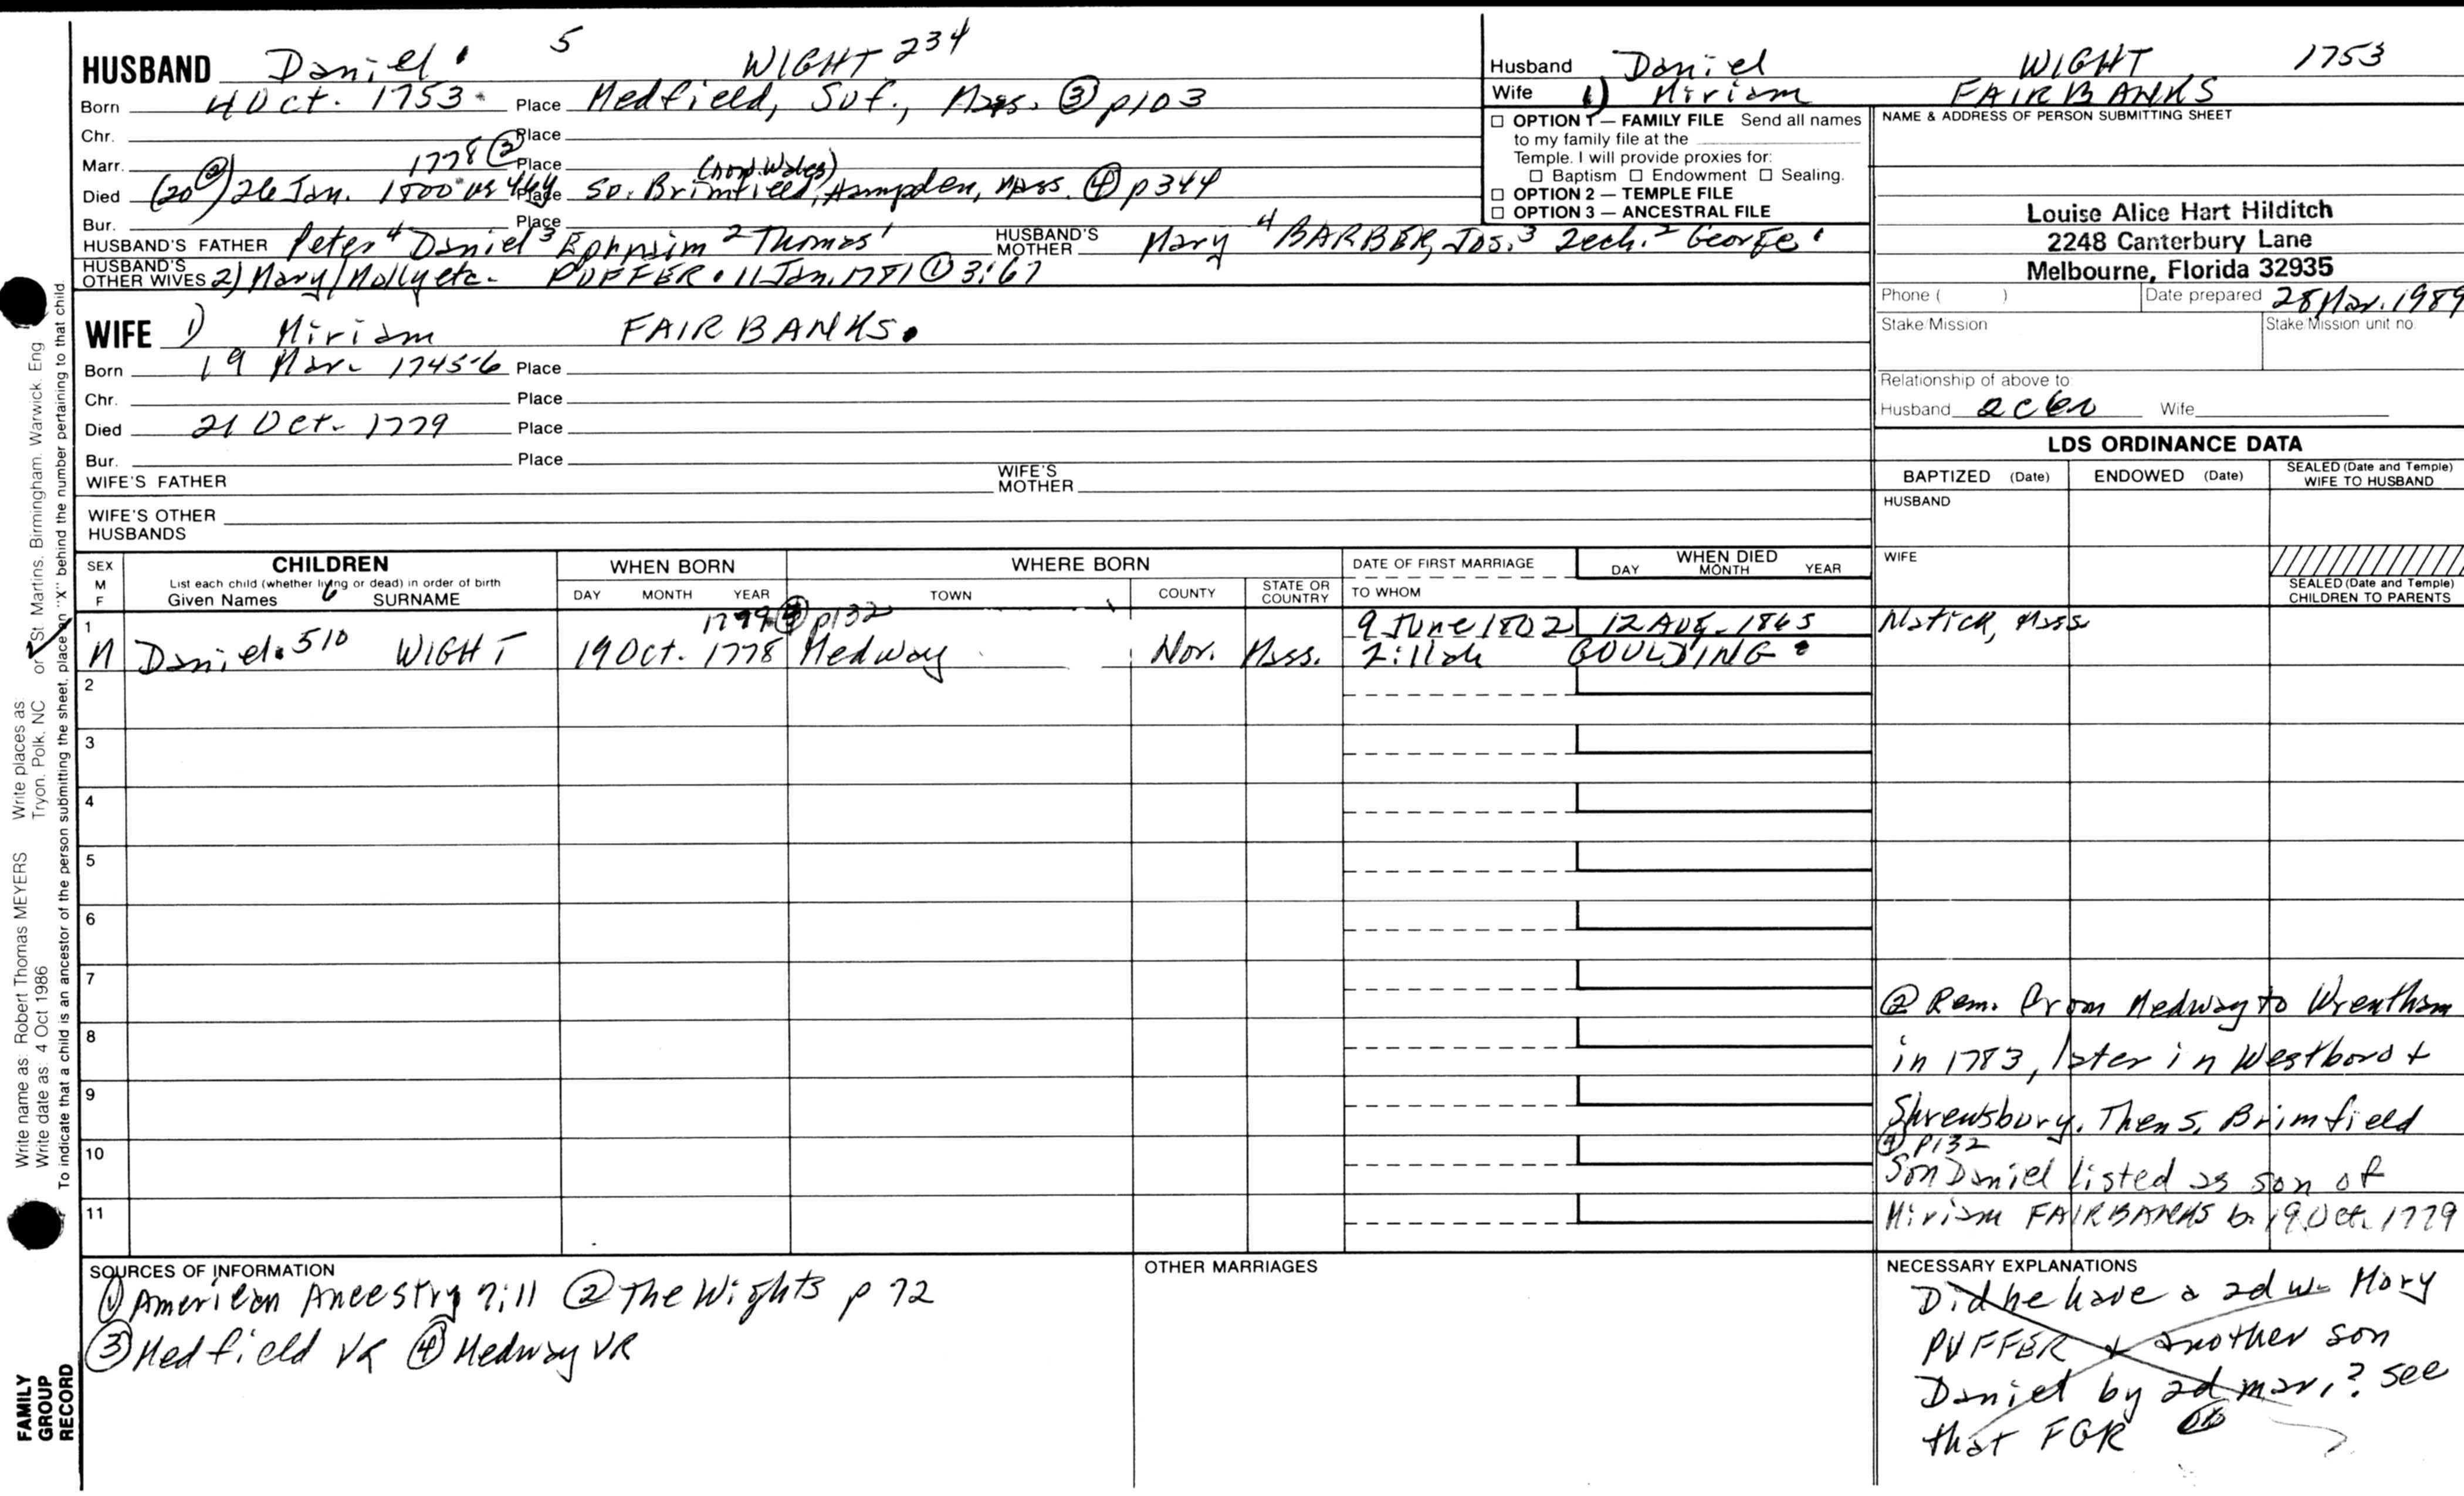 HUSBAND Daniel 5 WIGHT 234
Born 4 Oct. 1753 Place Medfield, Suf., Mass. ③ p103
Chr. Place
Marr. 1778 ② Place
(now Wales)
Died (20 ②) 26 Jan. 1800 Place So. Brimfield, Hampden, Mass. ④ p344
Bur. Place
HUSBAND'S FATHER Peter 4 Daniel 3 Ephraim 2 Thomas 1 HUSBAND'S MOTHER Mary 4 BARBER, Jos. 3 Zech. 2 George 1
HUSBAND'S OTHER WIVES 2) Mary/Molly etc. PUFFER 11 Jan. 1781 ① 3:67
WIFE 1) Miriam FAIRBANKS
Born 19 Mar. 1745-6 Place
Chr. Place
Died 21 Oct. 1779 Place
Bur. Place
WIFE'S FATHER WIFE'S MOTHER
WIFE'S OTHER HUSBANDS
Husband Daniel WIGHT 1753
Wife 1) Miriam FAIRBANKS
☐ OPTION 1 — FAMILY FILE Send all names
to my family file at the
Temple. I will provide proxies for:
☐ Baptism ☐ Endowment ☐ Sealing.
☐ OPTION 2 — TEMPLE FILE
☐ OPTION 3 — ANCESTRAL FILE
NAME & ADDRESS OF PERSON SUBMITTING SHEET
Louise Alice Hart Hilditch
2248 Canterbury Lane
Melbourne, Florida 32935
Phone ( ) Date prepared 28 Mar. 1989
Stake/Mission Stake/Mission unit no.
Relationship of above to:
Husband Wife
LDS ORDINANCE DATA
BAPTIZED (Date) ENDOWED (Date) SEALED (Date and Temple) WIFE TO HUSBAND
HUSBAND
WIFE
SEALED (Date and Temple) CHILDREN TO PARENTS
SEX M F
CHILDREN
List each child (whether living or dead) in order of birth
Given Names SURNAME
WHEN BORN
DAY MONTH YEAR
WHERE BORN
TOWN COUNTY STATE OR COUNTRY
DATE OF FIRST MARRIAGE
TO WHOM
WHEN DIED
DAY MONTH YEAR
1 1779 ④ p132 9 June 1802 12 Aug. 1865 Natick, Mass
M Daniel 510 WIGHT 19 Oct. 1778 Medway Nor. Mass. Zillah GOULDING
2
3
4
5
6
7
8
9
10
11
② Rem. from Medway to Wrentham
in 1783, later in Westboro +
Shrewsbury. Then S. Brimfield
④ p132
Son Daniel listed as son of
Miriam FAIRBANKS b. 19 Oct. 1779
SOURCES OF INFORMATION
① American Ancestry 7:11 ② The Wights p 72
③ Medfield VR ④ Medway VR
OTHER MARRIAGES
NECESSARY EXPLANATIONS
Did he have a 2d w. Mary
PUFFER + another son
Daniel by 2d mar.? See
that FGR
Write name as: Robert Thomas MEYERS Write places as: Tryon, Polk, NC or St Martins, Birmingham, Warwick, Eng
Write date as: 4 Oct 1986
To indicate that a child is an ancestor of the person submitting the sheet, place an "X" behind the number pertaining to that child.
FAMILY
GROUP
RECORD